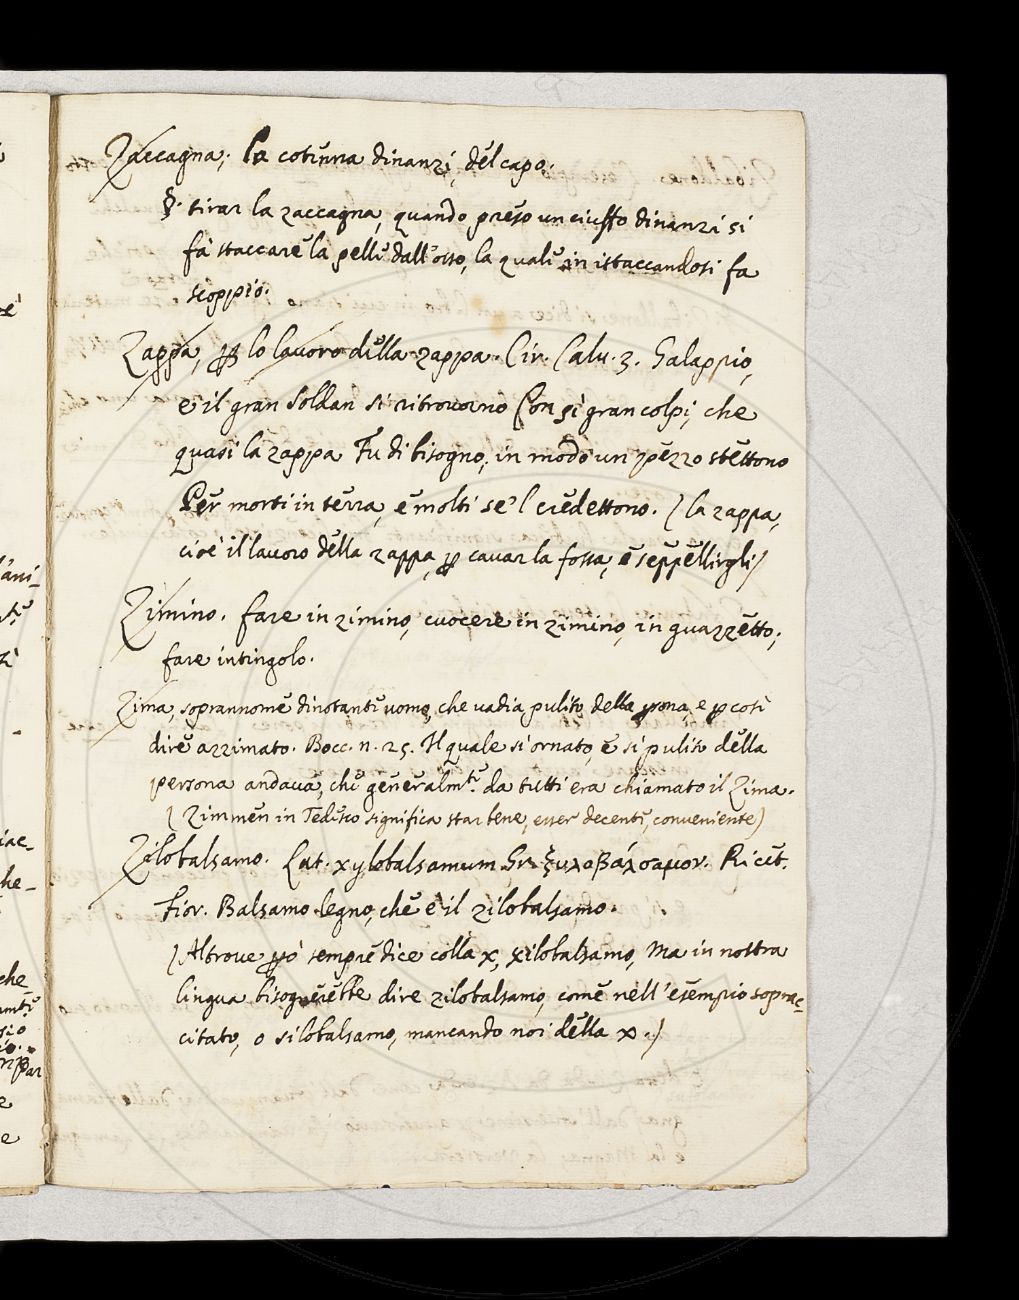 Zaccagna. La cotenna dinanzi, del capo.
§. tirar la zaccagna, quando preso un ciuffo dinanzi si
fa staccare la pelle dall'osso, la quale in istaccandosi fa
scoppio.
Zappa, ꝑ lo lavoro della zappa. Cir. Calv. 3. Galappio,
e il gran Soldan si ritrovorno Con sì gran colpi, che
quasi la zappa Fu di bisogno, in modo un pezzo stettono
Per morti in terra, e molti se'l credettono. (la zappa,
cioè il lavoro della zappa, ꝑ cavar la fossa, e seppellirgli)
Zimino. fare in zimino, cuocere in zimino, in guazzetto,
fare intingolo.
Zima, soprannome dinotante uomo, che vadia pulito della ꝑsona, e ꝑ così
dire azzimato. Bocc. n. 25. Il quale sì ornato, e sì pulito della
persona andava, che generalmte. da tutti era chiamato il Zima.
(Zimmen in Tedesco significa star bene, esser decente, conveniente)
Zilobalsamo. Lat. xylobalsamum Gr. ξυλοβάλσαμον. Ricet.
Fior. Balsamo legno, che è il zilobalsamo.
(Altrove ꝑò sempre dice colla x, xilobalsamo, Ma in nostra
lingua bisognerebbe dire zilobalsamo, come nell'esempio soprac-
citato, o silobalsamo, mancando noi della x.)